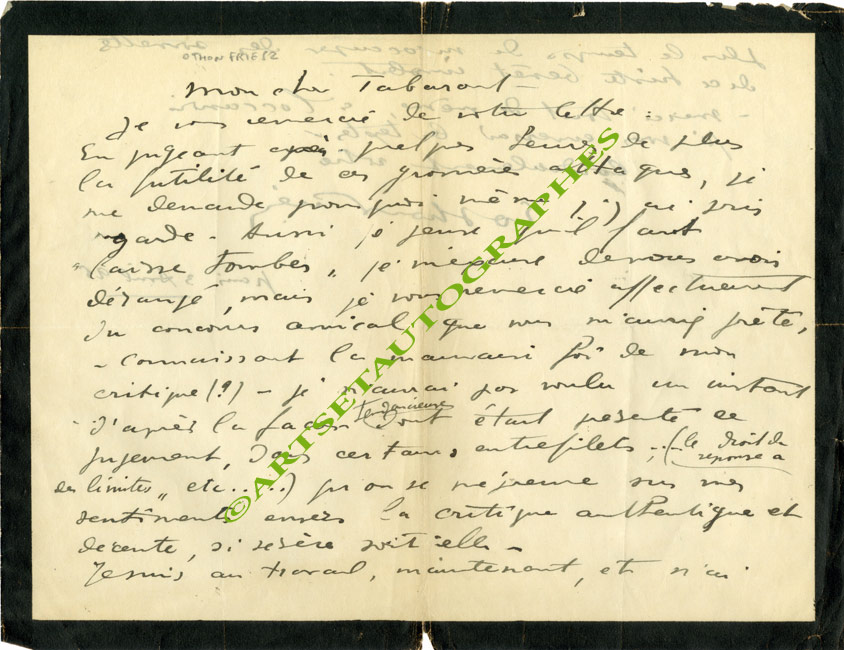 OTHON FRIESZ
Mon cher Tabarant
Je vous remercie de votre lettre :
En jugeant après quelques heures de plus
la futilité de ces grossières attaques, je
me demande pourquoi même j'y ai pris
garde. Aussi je pense qu'il faut
"laisser tomber", je m'excuse de vous avoir
dérangé, mais je vous remercie affectueusement
du concours amical que vous m'auriez prêté,
- connaissant la mauvaise foi de mon
critique (?) - je n'aurai pas voulu un instant
d'après la façon tendancieuse dont était présenté ce
jugement, dans certains entrefilets.. (le droit de
réponse a
des limites" etc.....) qu'on se méprenne sur mes
sentiments envers la critique authentique et
décente, si sévère soit-elle -
Je suis au travail, maintenant, et n'ai
©ARTSETAUTOGRAPHES